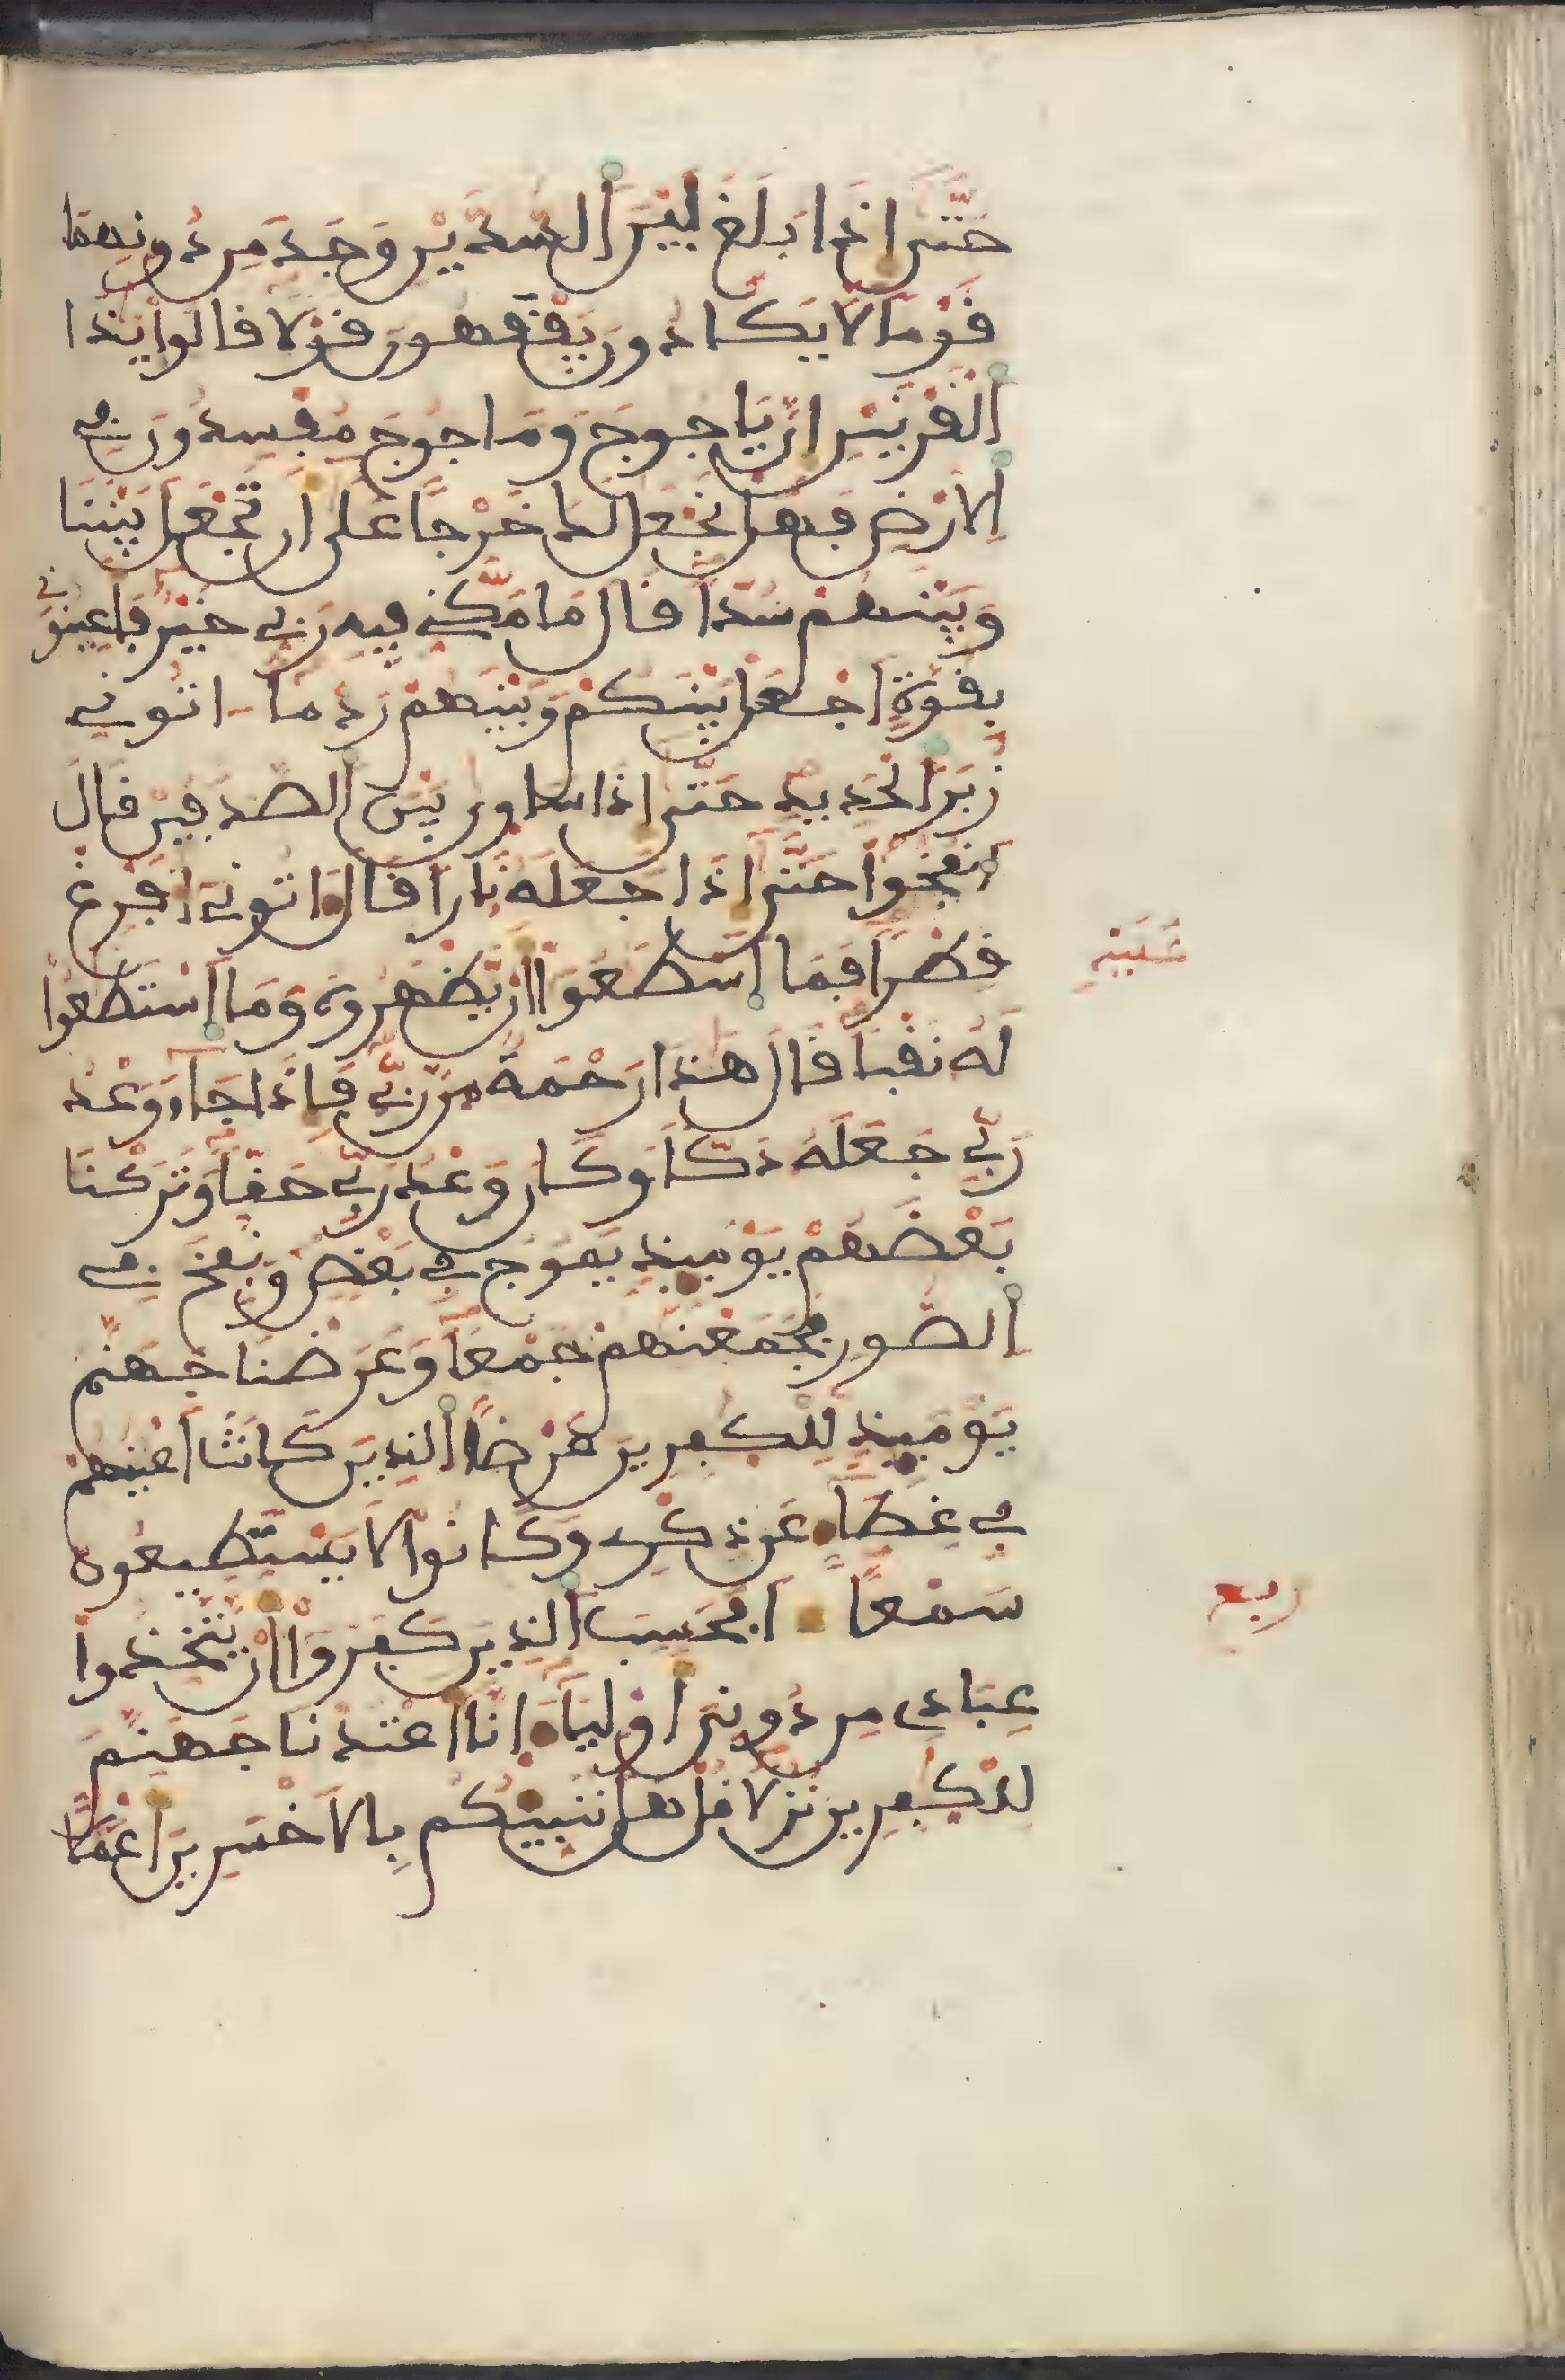 حَتَّىٰ إِذَا بَلَغَ بَيْنَ ٱلسُّدَّيْنِ وَجَدَ مِن دُونِهِمَا
قَوْمًا لَّا يَكَادُونَ يَفْقَهُونَ قَوْلًا قَالُوا۟ يَٰذَا
ٱلْقَرْنَيْنِ إِنَّ يَاجُوجَ وَمَاجُوجَ مُفْسِدُونَ فِے
اِ۬لَارْضِ فَهَلْ نَجْعَلُ لَكَ خَرْجًا عَلَىٰٓ أَن تَجْعَلَ بَيْنَنَا
وَبَيْنَهُمْ سُدًّا قَالَ مَا مَكَّنِّے فِيهِ رَبِّے خَيْرٌ فَأَعِينُونِے
بِقُوَّةٍ اَجْعَلْ بَيْنَكُمْ وَبَيْنَهُمْ رَدْمًا اتُونِے
زُبَرَ ٱلْحَدِيدِ حَتَّىٰٓ إِذَا سَاوىٰ بَيْنَ ٱلصَّدَفَيْنِ قَالَ
ٱنفُخُوا۟ حَتَّىٰٓ إِذَا جَعَلَهُ نَارًا قَالَ ءَاتُونِےٓ أُفْرِغْ
قِطْرًا فَمَا ٱسْطَٰعُوٓا۟ أَنْ يَّظْهَرُوهُ وَمَا ٱسْتَطَٰعُوا۟
لَهُ نَقْبًا قَالَ هَٰذَا رَحْمَةٌ مِّن رَّبِّے فَإِذَا جَآءَ وَعْدُ
رَبِّے جَعَلَهُ دَكًّا وَكَانَ وَعْدُ رَبِّے حَقًّا وَتَرَكْنَا
بَعْضَهُمْ يَوْمَئِذٍ يَمُوجُ فِے بَعْضٍ وَنُفِخَ فِے
ٱلصُّورِ فَجَمَعْنَٰهُمْ جَمْعًا وَعَرَضْنَا جَهَنَّمَ
يَوْمَئِذٍ لِّلْكَٰفِرِينَ عَرْضًا ٱلذِينَ كَانَتَ اَعْيُنُهُمْ
فِے غِطَآءٍ عَن ذِكْرِے وَكَانُوا۟ لَا يَسْتَطِيعُونَ
سَمْعًا اَفَحَسِبَ ٱلذِينَ كَفَرُوٓا۟ أَنْ يَّتَّخِذُوا۟
عِبَادِے مِن دُونِىَ أَوْلِيَآءَ إِنَّآ أَعْتَدْنَا جَهَنَّمَ
لِلْكَٰفِرِينَ نُزُلًا قُلْ هَلْ نُنَبِّئُكُم بِالَاخْسَرِينَ أَعْمَٰلًا
ربع